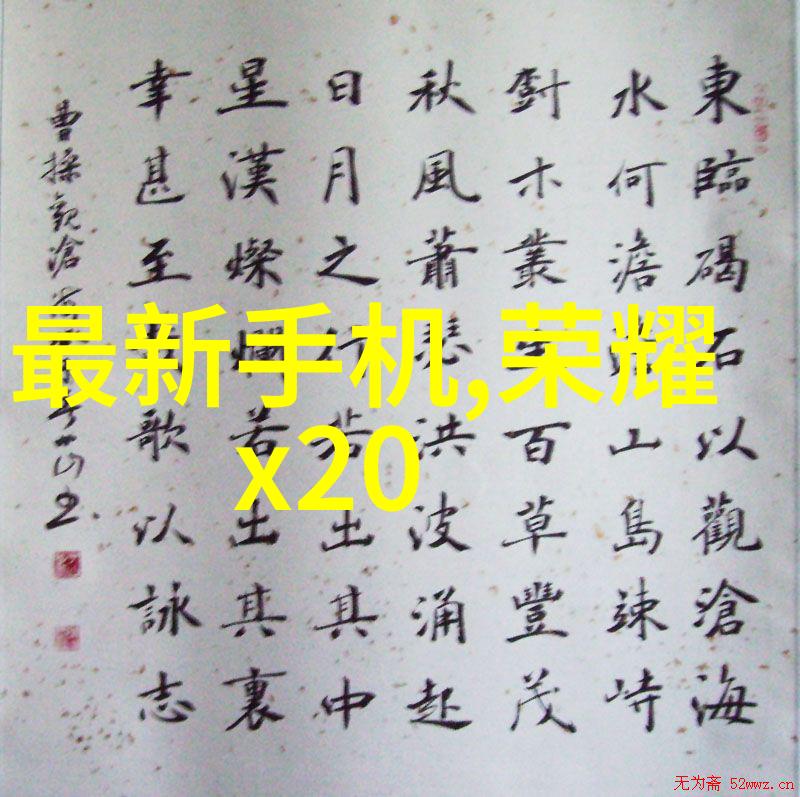 東臨碣石以觀滄海
水何澹澹山島竦峙
樹木叢生百草豐茂
秋風蕭瑟洪波涌起
日月之行若出其中
星漢燦爛若出其裏
幸甚至哉歌以詠志
曹操觀滄海
最新手机,荣耀
x20
无为斋 52wwz.cn